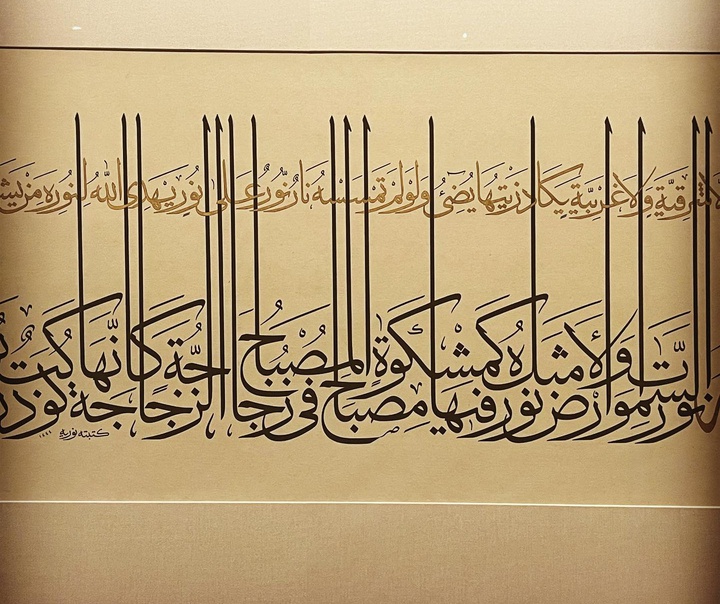 لا شرقية ولا غربية يكاد زيتها يضئ ولو لم تمسسه نار نور على نور يهدى الله لنوره من يش
نور السموات والأرض مثل نوره كمشكوة فيها مصباح المصباح في زجاجة الزجاجة كأنها كوكب در
كتبته نوريه